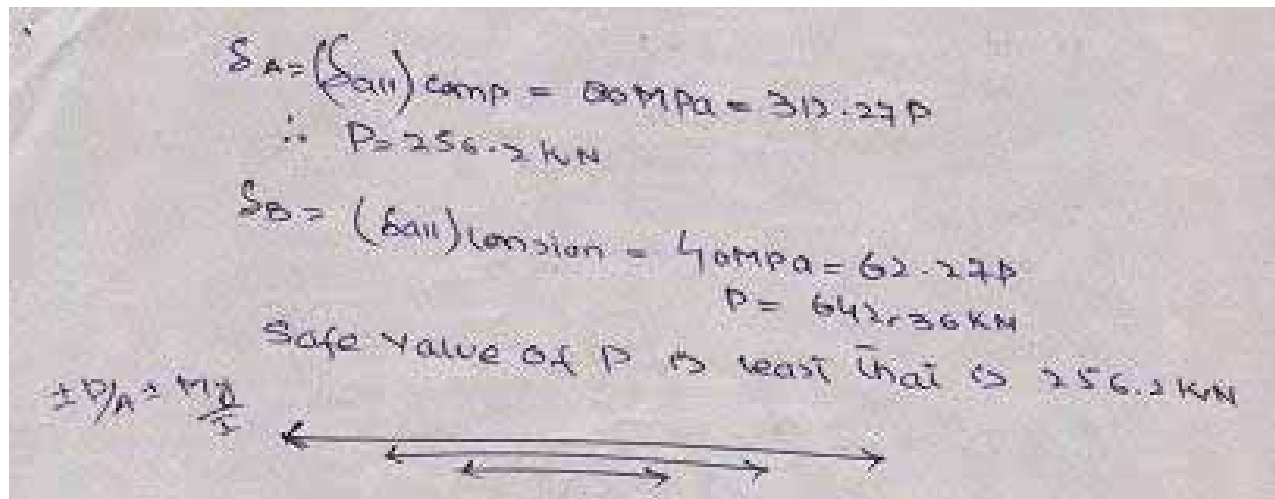 SA = (Sall) comp = 80MPa = 312.27P
∴ P = 256.2 KN
SB = (Sall) tension = 40MPa = 62.27P
P = 642.36KN
Safe value of P is least that is 256.2 KN
± P/A ± My/I